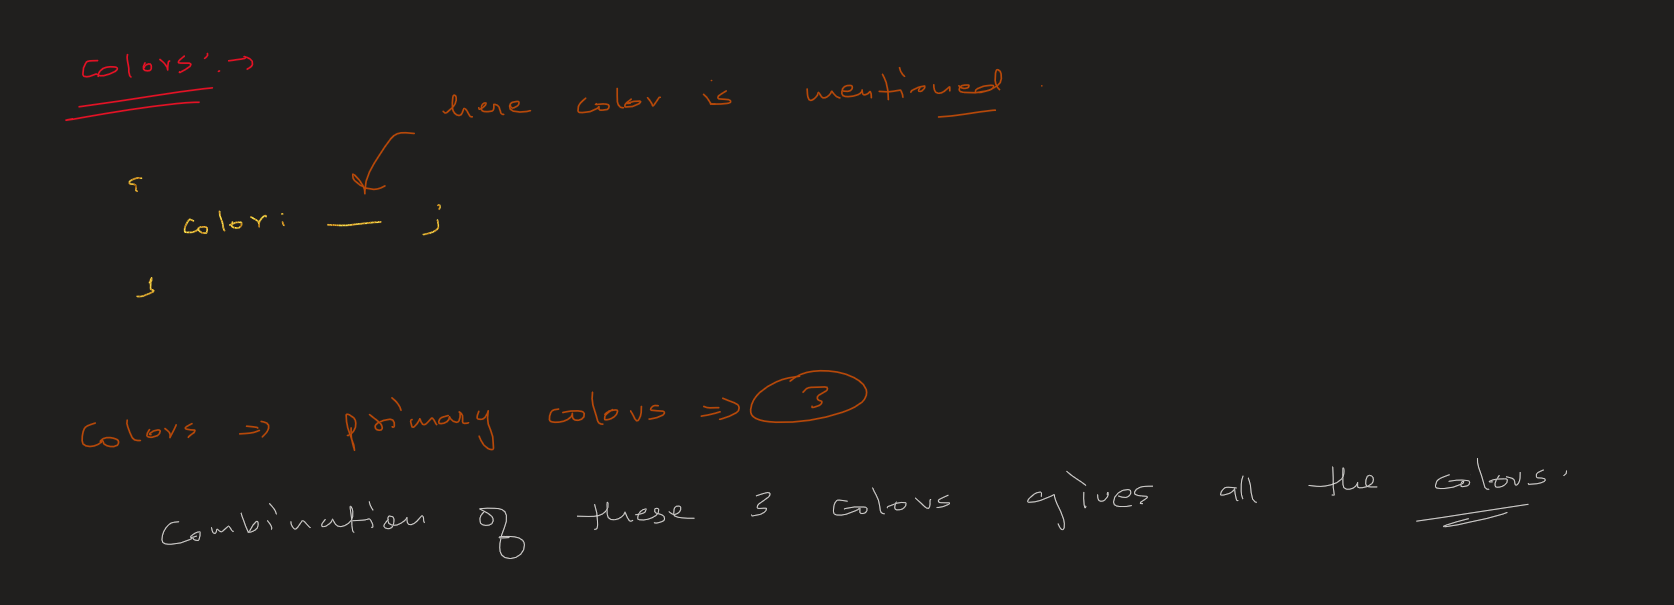 Colors :→
here color is mentioned.
{
color: — ;
}
Colors => primary colors => 3
Combination of these 3 colors gives all the colors.